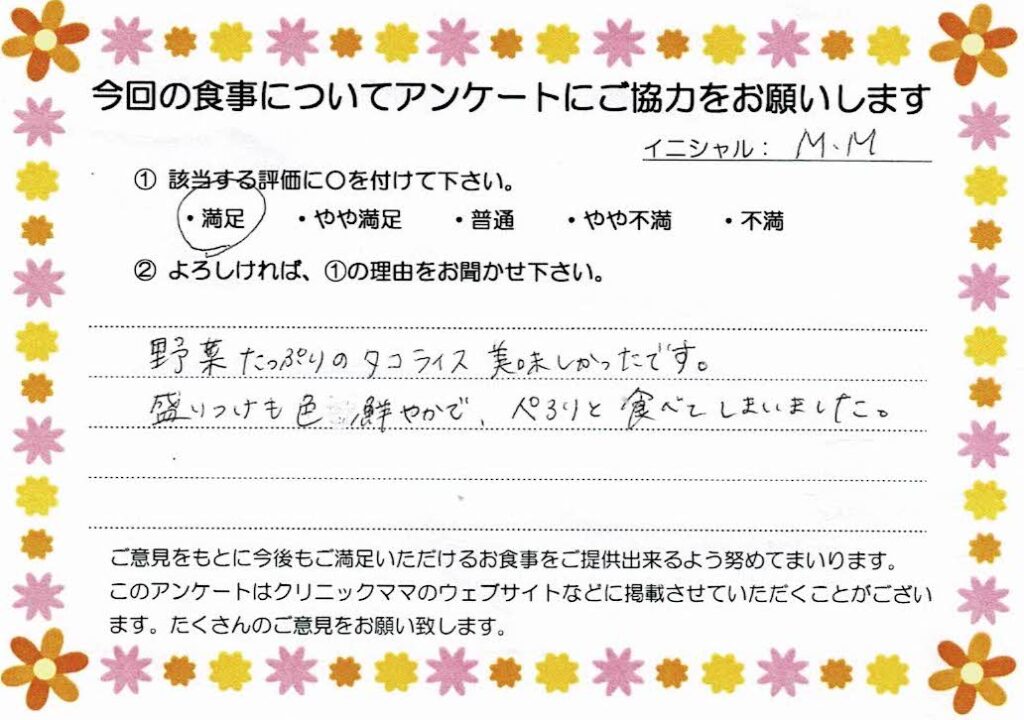 今回の食事についてアンケートにご協力をお願いします
イニシャル： M.M
① 該当する評価に〇を付けて下さい。
・満足 ・やや満足 ・普通 ・やや不満 ・不満
② よろしければ、①の理由をお聞かせ下さい。
野菜たっぷりのタコライス美味しかったです。
盛りつけも色鮮やかで、ぺろりと食べてしまいました。
ご意見をもとに今後もご満足いただけるお食事をご提供出来るよう努めてまいります。
このアンケートはクリニックママのウェブサイトなどに掲載させていただくことがござい
ます。たくさんのご意見をお願い致します。